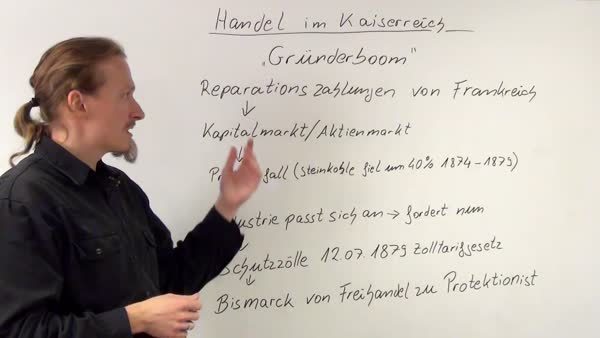 Handel im Kaiserreich
„Gründerboom"
Reparationszahlungen von Frankreich
↓
Kapitalmarkt/Aktienmarkt
↓
(Steinkohle fiel um 40% 1874-1879)
passt sich an → fordert nun
↓
Schutzzölle 12.07.1879 Zolltarifgesetz
↓
Bismarck von Freihandel zu Protektionist